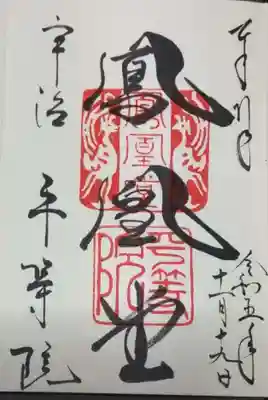 奉拝
令和五年
十一月十九日
鳳凰堂
鳳凰堂
平等院
宇治
平等院